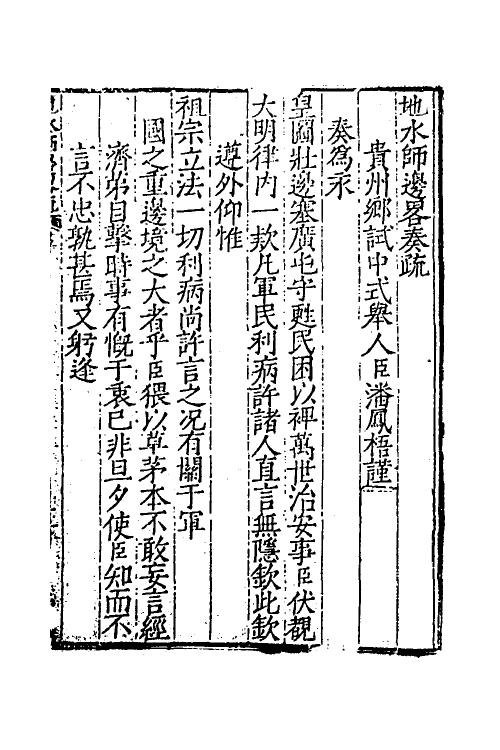 地水師邊畧奏疏
貴州鄉試中式舉人臣潘鳳梧謹
奏爲永
皇圖壯邊塞廣屯守甦民困以裨萬世治安事臣伏覩
大明律内一款凡軍民利病許諸人直言無隱欽此欽
遵外仰惟
祖宗立法一切利病尚許言之况有關于軍
國之重邊境之大者乎臣猥以草茅本不敢妄言經
濟弟目擊時事有慨于衷已非旦夕使臣知而不
言不忠孰甚焉又躬逢